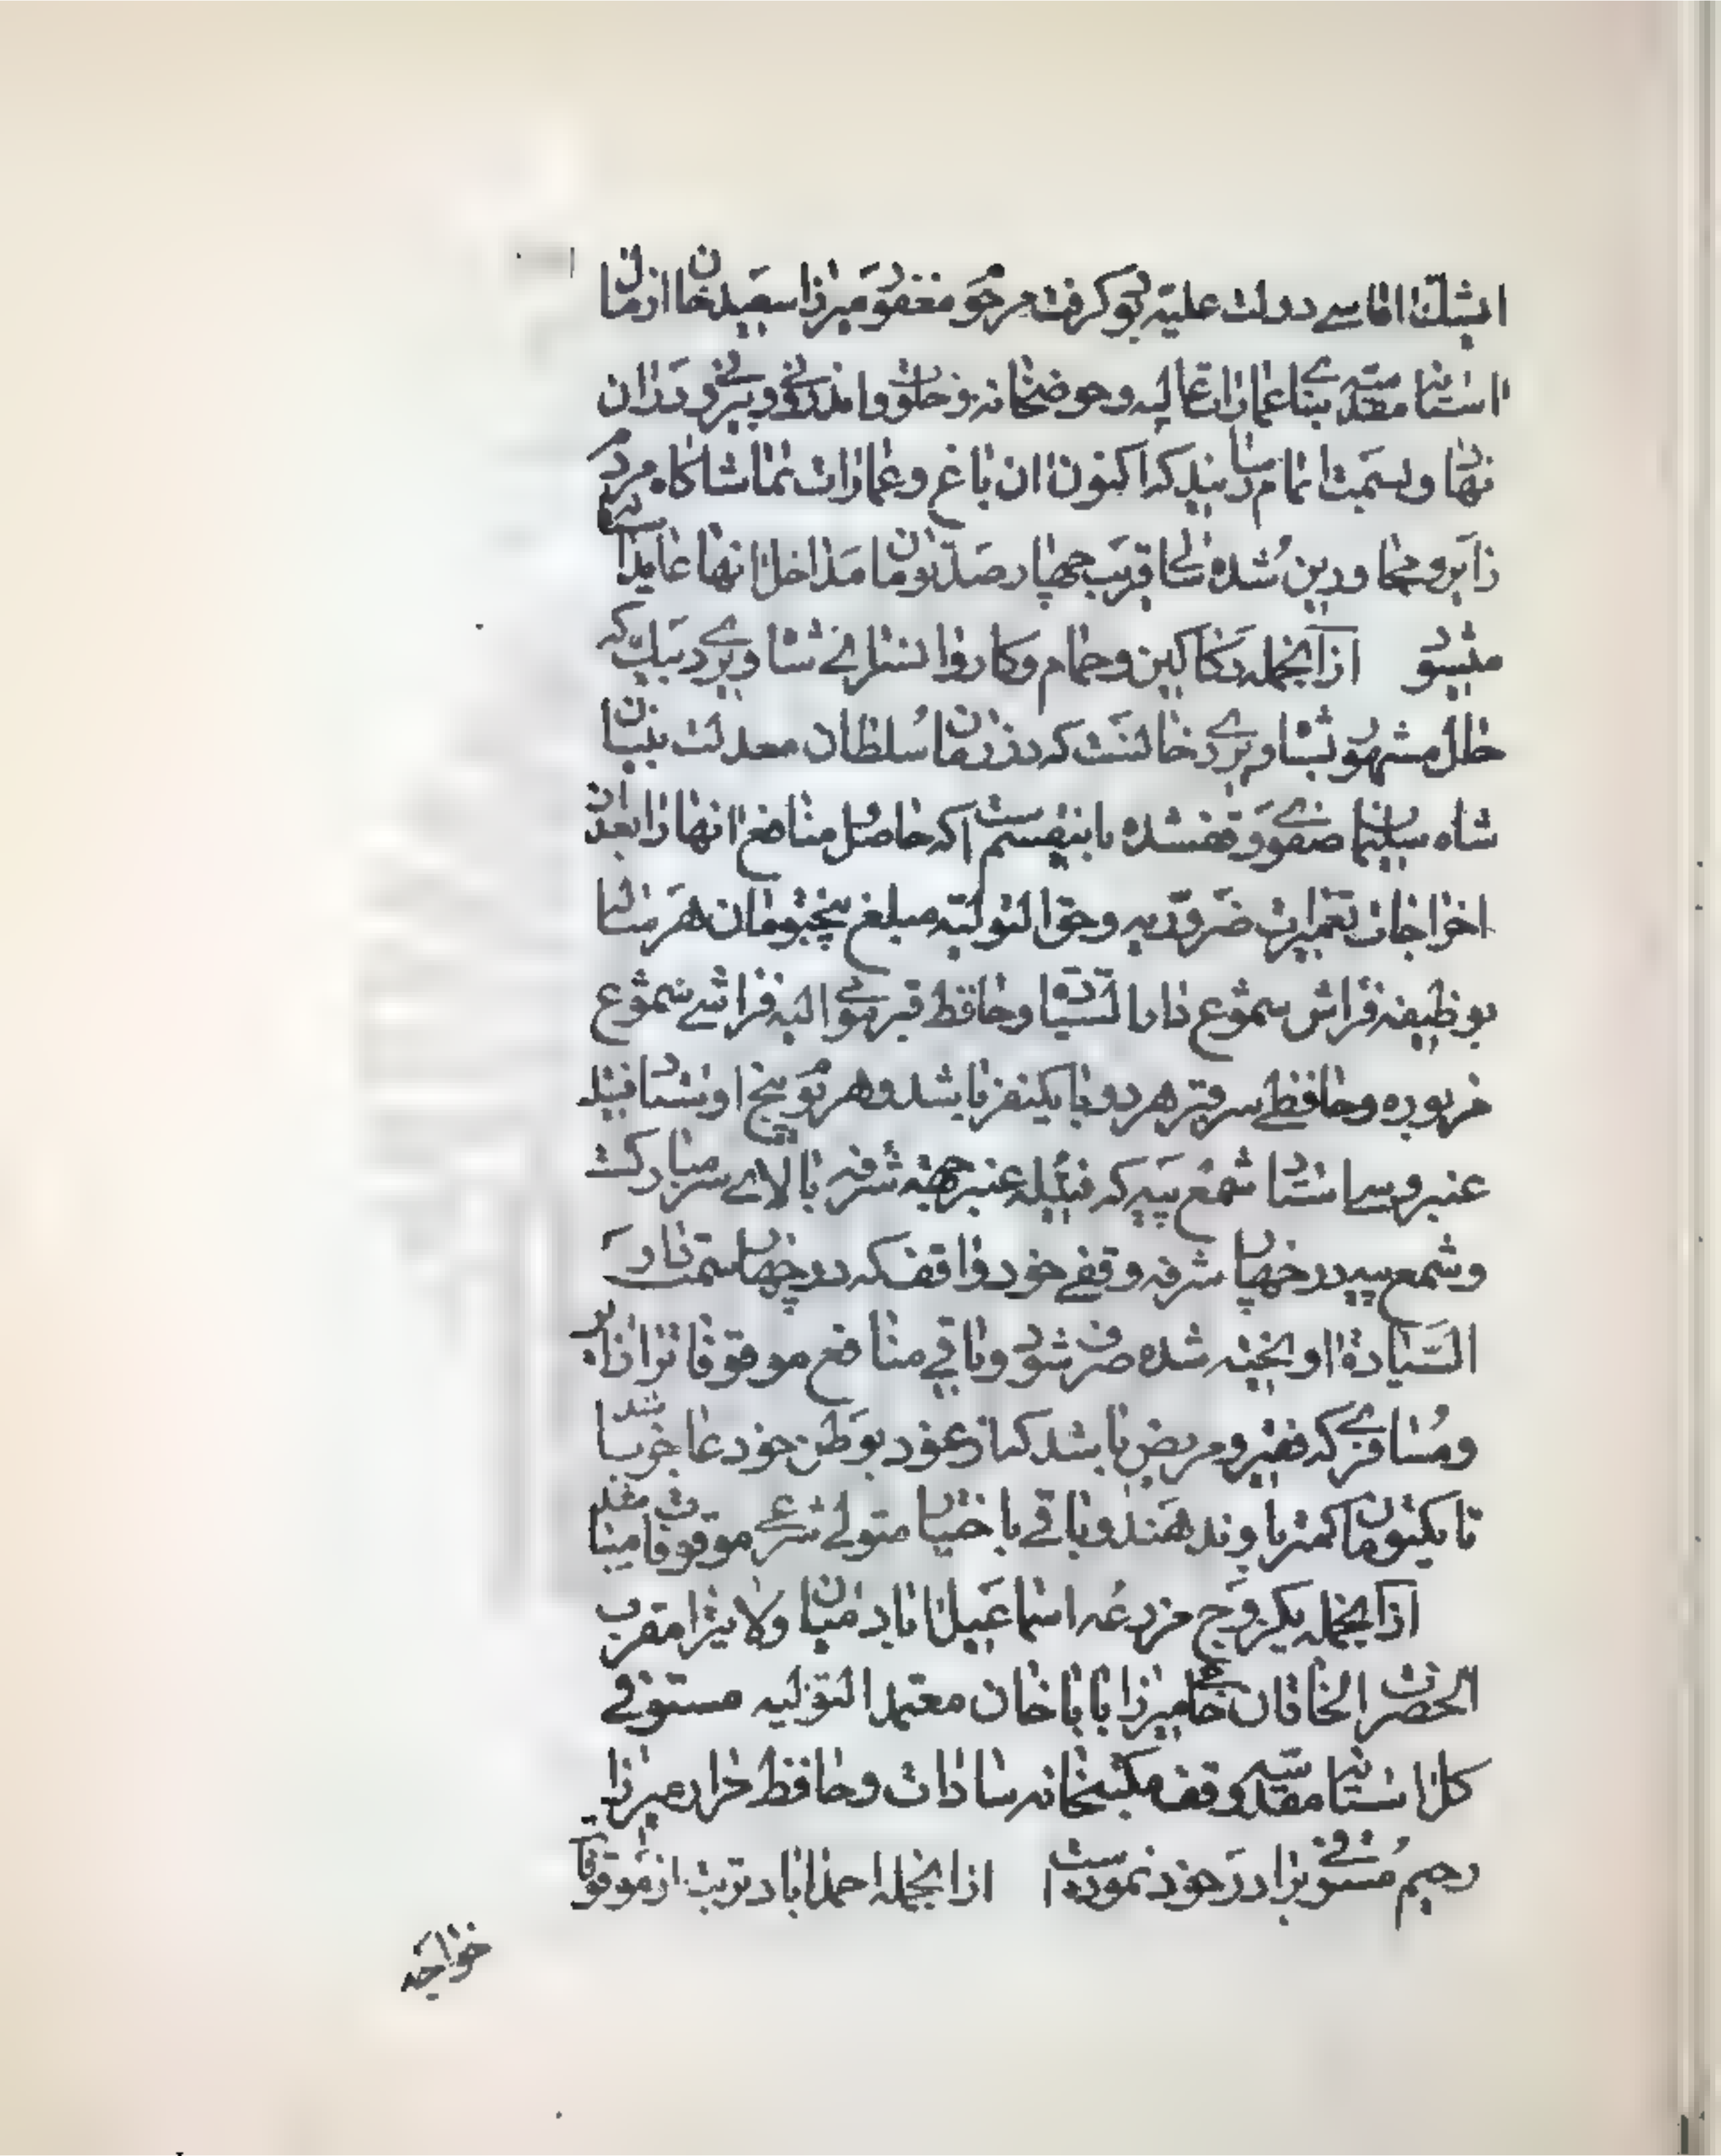 ایشک اقاسی دولت علیه بوکرفت مرحوم مغفور میرزا سعید خان از زمان
استانه مقدسه بنای عمارات عالیه و حوضخانه و خلوت و اندرونی و بیرونی دران
نهاد و بسمت اتمام رسانید که اکنون ان باغ و عمارات تماشا کاه مردم
زایر و مجاورین شده سالی قریب چهار صد تومان مداخل انها عاید استانه
میشود ازانجمله دکاکین و حمام و کاروانسرای شاه ویردی بیک که
حال مشهور بشاه ویردی خانست که در زمان سلطان معدلت بنیان
شاه سلیمان صفوی وقف شده باینقسم است که حاصل منافع انها را بعد از
اخراجات تعمیرات ضروریه و حق التولیه مبلغ پنجتومان هر سال
بوظیفه فراش شموع دار السیاده و حافظ قبر متوالیه فراشی شموع
مزبوره و حافظی سر قبر هر دو با یکنفر باشد و هر روز پنج اوستاد فتیله
عنبر و سی استاد شمع پیه که فتیله عنبر جهة شرفه بالای سر مبارکست
و شمع پیه در چهار شرفه وقفی خود واقف که در چهار سمت دار
السیادة اویخته شده صرف شود و باقی منافع موقوفات را زایر
و مسافری که فقیر و مریض باشد که از عود بوطن خود عاجز باشد
تا یکتومان کمتر باو ندهند و باقی باختیار متولی شرعی موقوفات مقد مینا
ازانجمله یکزوج مزرعه اسماعیل اباد میان ولایت را مقرب
الحضرت الخاقان حاجی میرزا بابا خان معتمد التولیه مستوفی
کل استانه مقدسه وقف مکتبخانه سادات و حافظ مزار میرزا
رحیم مستوفی برادر خود نموده است ازانجمله احمد اباد تربت از موقوفا
خواجه